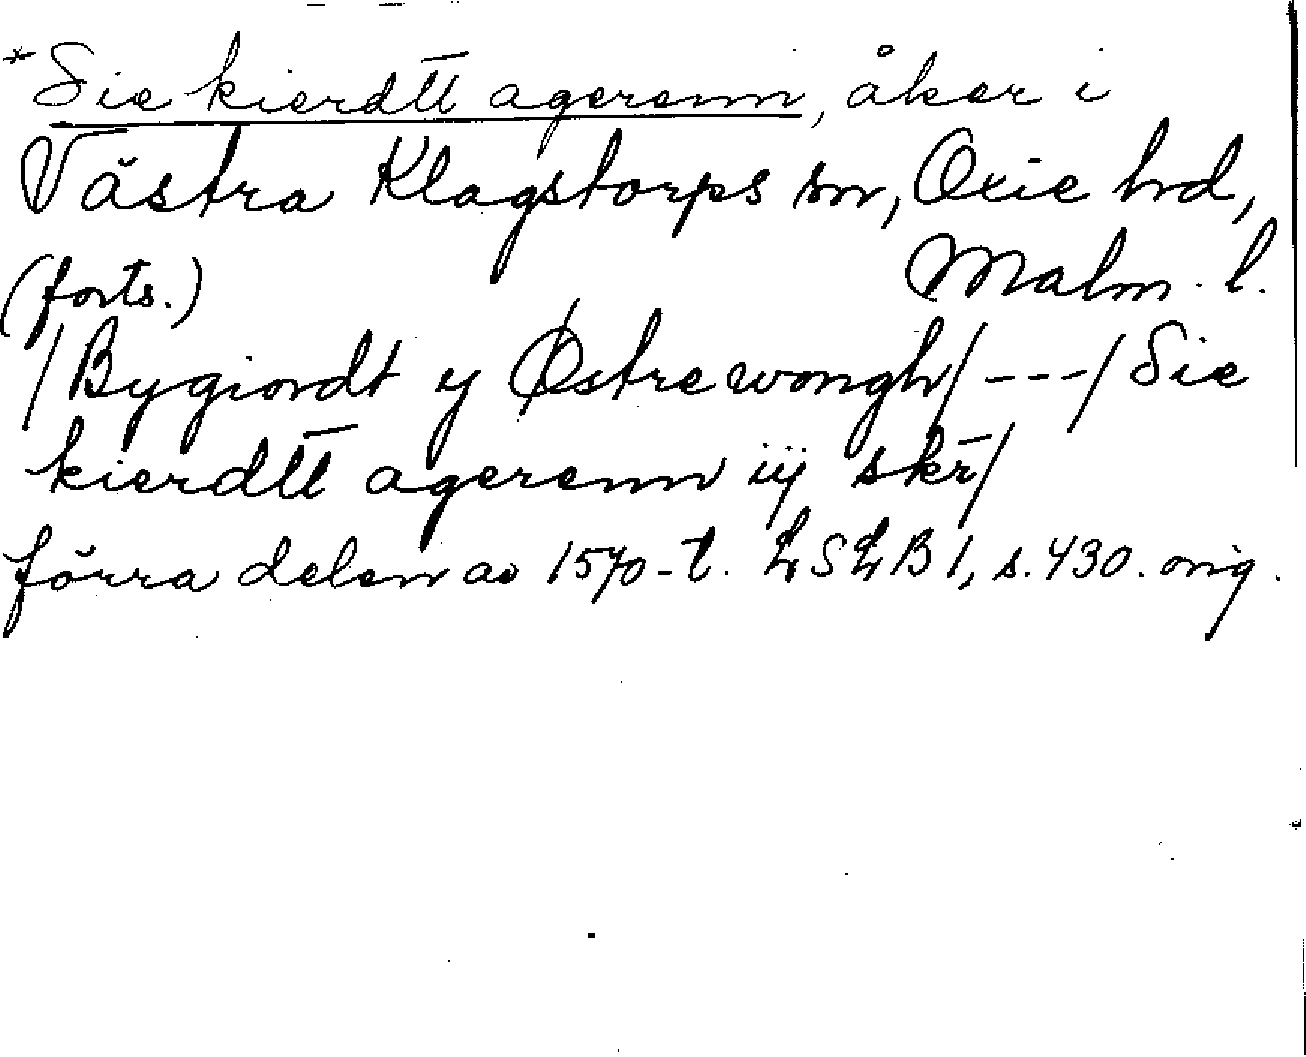 *Sie kierdt̄t agerenn, åker i
Västra Klagstorps sn, Oxie hd,
(forts.) Malm. l.
/Bygiordt y Østre wongh/---/Sie
kierdt̄t agerenn iij skr̄/
förra delen av 1570-t. LSLB 1, s. 430. orig.